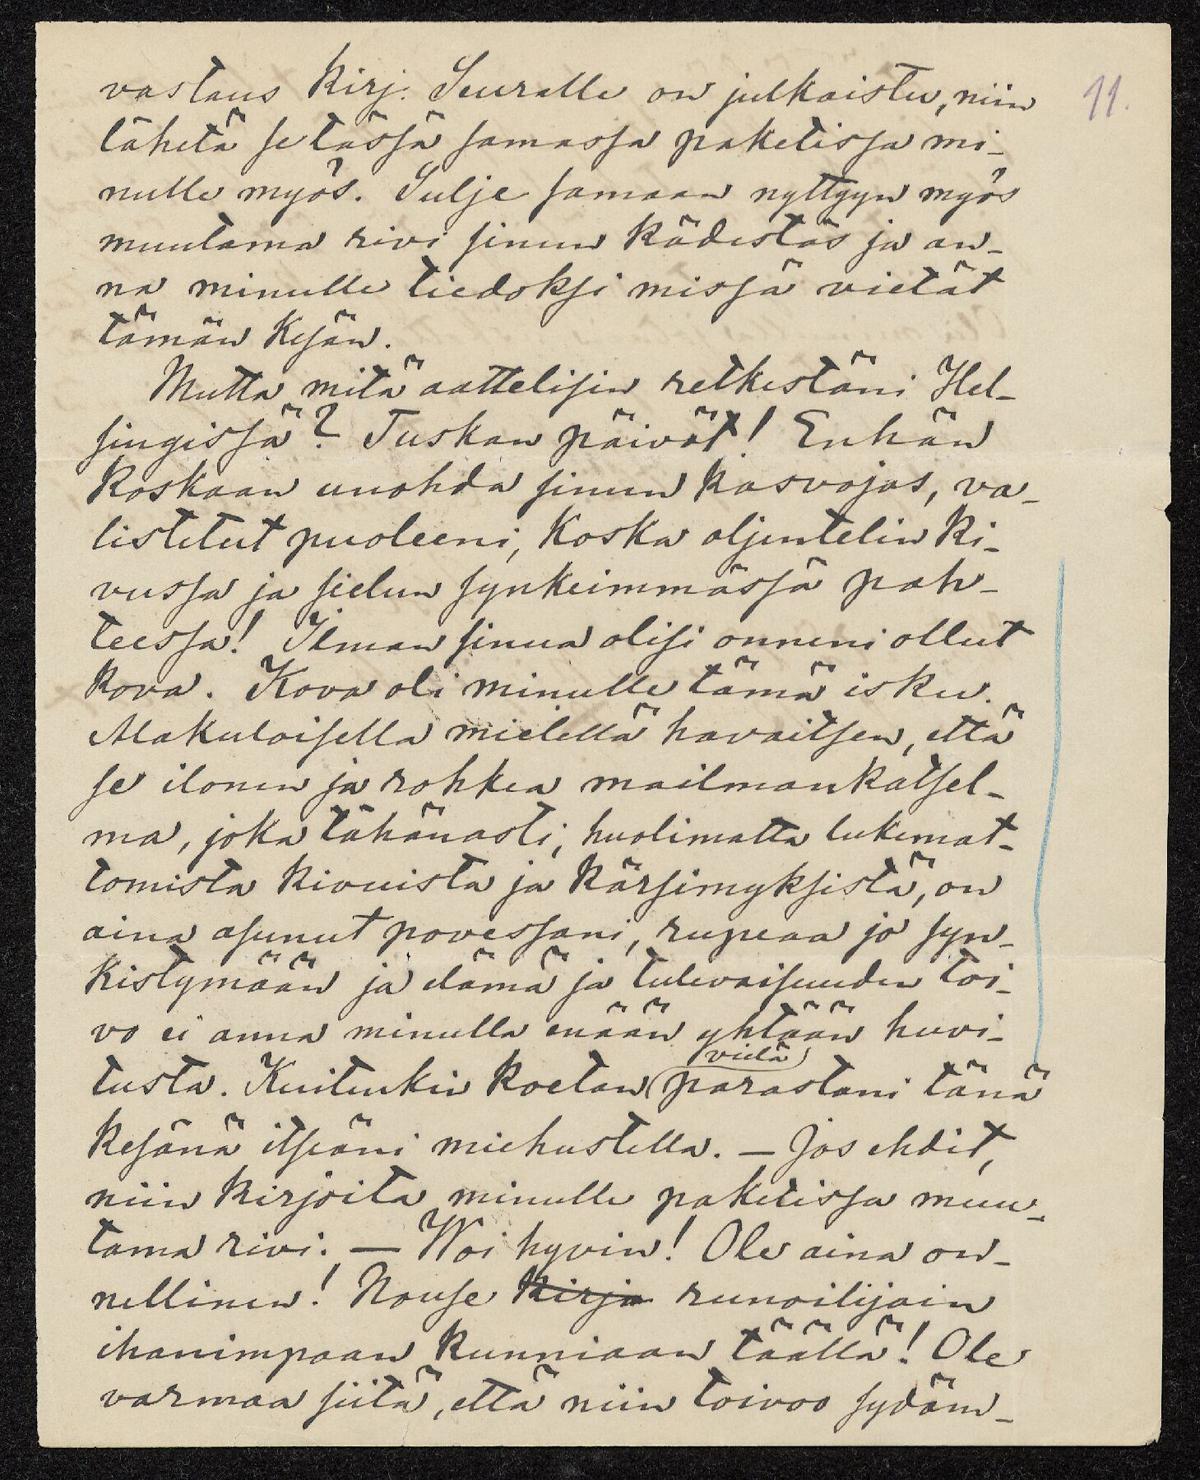 vastaus Kirj. Seuralle on julkaistu, niin
11.
lähetä se tässä samassa paketissa mi-
nulle myös. Sulje samaan nyttyyn myös
muutama rivi sinun kädestäs ja an-
na minulle tiedoksi missä vietät
tämän kesän.
Mutta mitä aattelisin retkestäni Hel-
singissä? Tuskan päivät! Enhän
koskaan unohda sinun kasvojas, va-
listetut puoleeni, koska oljentelin ki-
vussa ja sielun synkeimmässä pah-
teessa! Ilman sinua olisi onneni ollut
kova. Kova oli minulle tämä isku.
Alakuloisella mielellä havaitsen, että
se ilonen ja rohkea mailmankatsel-
ma, joka tähänasti, huolimatta lukemat-
tomista kivuista ja kärsimyksistä, on
aina asunut povessani, rupeaa jo syn-
kistymään ja elämä ja tulevaisuuden toi-
vo ei anna minulla enään yhtään huvi-
tusta. Kuitenkin koetan (vielä) parastani tänä
kesänä itseäni miehustella. — Jos ehdit,
niin kirjoita minulle paketissa muu-
tama rivi. — Woi hyvin! Ole aina on-
nellinen! Nouse kirja runoilijain
ihanimpaan kunniaan täällä! Ole
varmaa siitä, että niin toivoo sydäm-